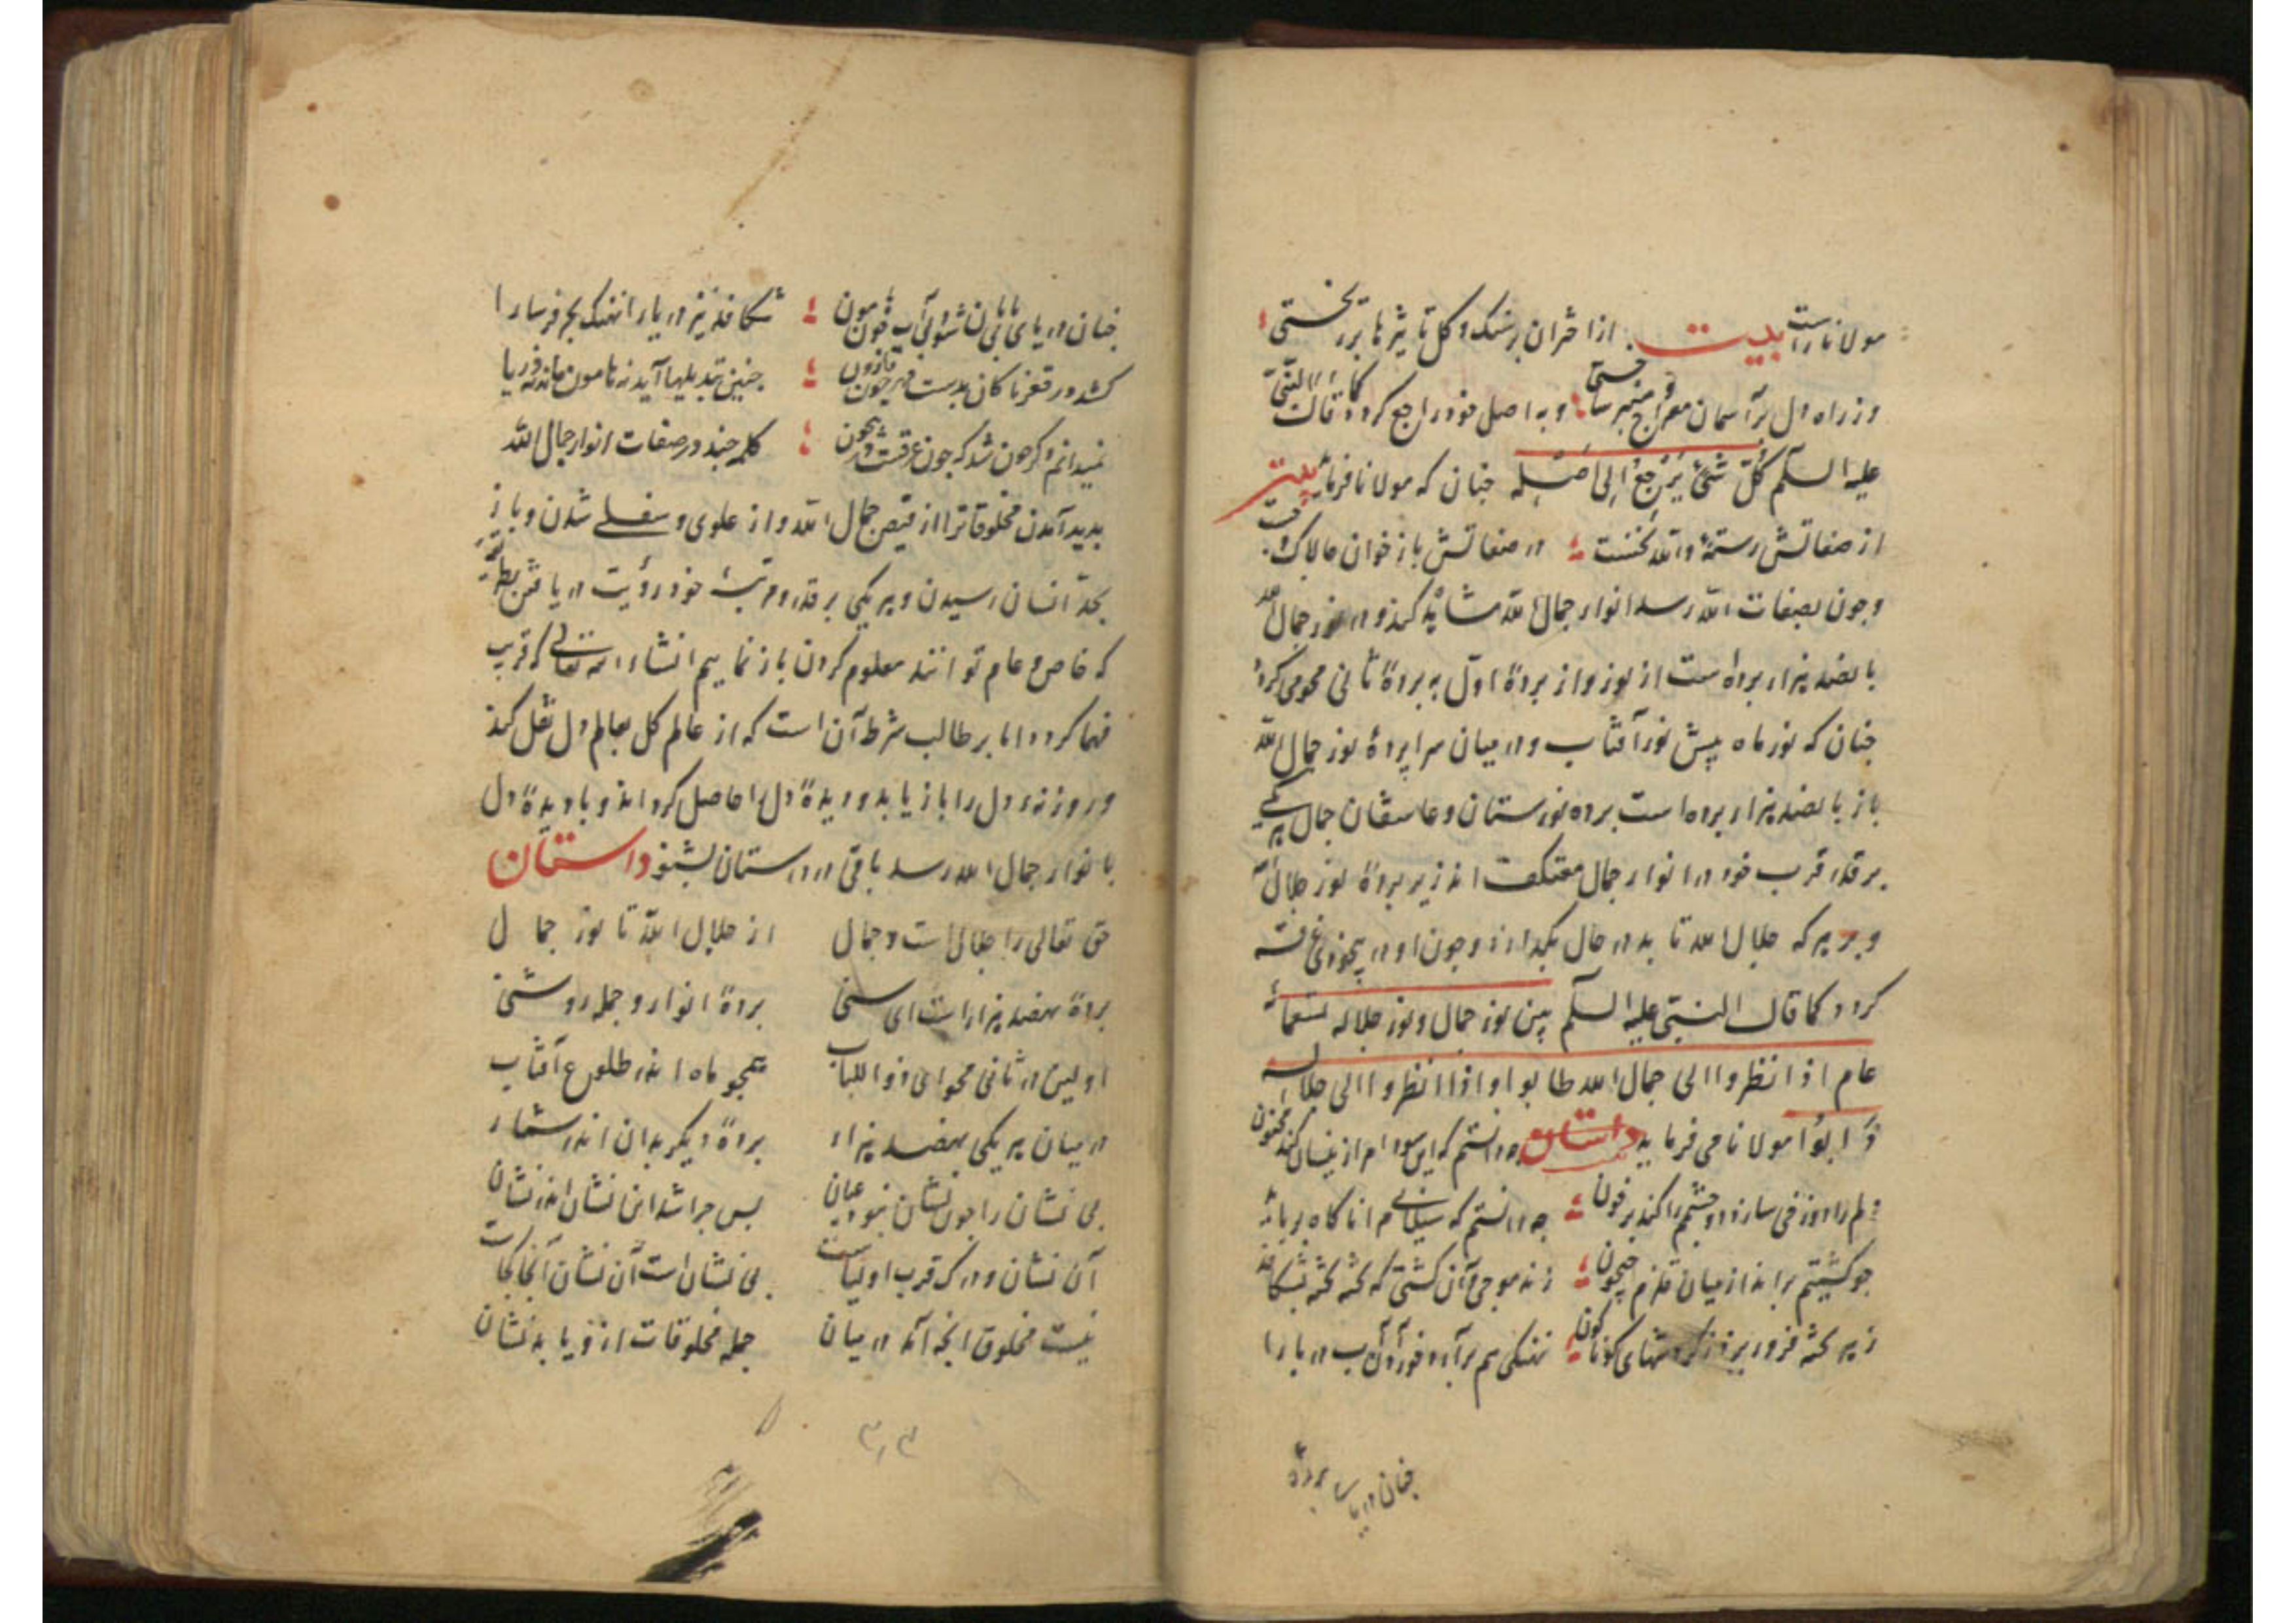 مولانا راست بیت از اختران بر سنک و کل تأثیرها بر ریختی
وز راه دل بر آسمان معراج منبر ساختی و به اصل خود راجع کردد کما قال النبی
علیه السلام کل شیء یرجع الی اصله جنان که مولانا فرماید بیت
از صفاتش رسته والله نخست در صفاتش باز خوان جالاک و جست
و جون بصفات الله رسد انوار جمال الله مشاهده کند و در نور جمال الله
بانصد هزار برده است از نور و از بردهٔ اول به بردهٔ ثانی محو می کردد
جنان که نور ماه پیش نور آفتاب و در میان سرابردهٔ نور جمال الله
باز بانصد هزار برده است برده نورستان و عاشقان جمال هر یکی
بر قدر قرب خود در انوار جمال معتکف اند زیر بردهٔ نور جلال الله
و بر هر که جلال الله تابد در حال بکدازد و جون او در بیجونی غرقه
کردد کما قال النبی علیه السلام بین نور جمال و نور جلاله تسعمائة
عام اذا نظروا الی جمال الله طابوا و اذا انظروا الی جلاله
ذابوا مولانا می فرماید داستان جه دانستم که این سودا مرا زینسان کند مجنون
دلم را دوزخی سازد دو جشمم را کند بر خون جه دانستم که سیلابی مرا ناکاه برباید
جو کشتیم براند از میان قلزم جیحون زند موجی بر آن کشتی که تخته تخته بشکافد
ز هر تخته فرو ریزد ز کردشهای کوناکون نهنکی هم بر آرد خورد آن آب دریا را
جنان دریای
جنان دریای بی بایان شود بی آب جون هامون شکافد نیز دریا را نهنک بحر فرسا را
کشد در قعر ناکاهان بدست قهر جون قارون جنین تبدیلها آید نه هامون ماند نه دریا
نمیدانم دکر جون شد که جون غرقست در بیجون کلمهٔ جند در صفات انوار جمال الله
بدید آمدن مخلوقات را از فیض جمال الله و از علوی و سفلی شدن و باز
بحد انسان رسیدن و هر یکی بر قدر و مرتبهٔ خود رؤیت دریافتن
که خاص و عام توانند معلوم کردن باز نماییم انشاء الله تعالی که قریب
فهم کردد اما بر طالب شرط آن است که از عالم کل بعالم دل نقل کند
و روزنهٔ دل را باز یابد و دیدهٔ دل را حاصل کرداند و با دیدهٔ دل
بانوار جمال الله رسد باقی در داستان بشنو داستان
حق تعالی را جلال است و جمال از جلال الله تا نور جمال
بردهٔ هفصد هزار است ای سنی بردهٔ انوار و جمله روشنی
اولین در ثانی محو ای ذو اللباب همجو ماه اندر طلوع آفتاب
در میان هر یکی هفصد هزار بردهٔ دیکر بدان اندر شمار
بی نشان را جون نشان نبود عیان بس جرا شد این نشان اندر نشان
آن نشان در درک قرب اولیاست بی نشان است آن نشان آنجا کجاست
نیست مخلوق انجه آمد در میان جمله مخلوقات ازو یابد نشان